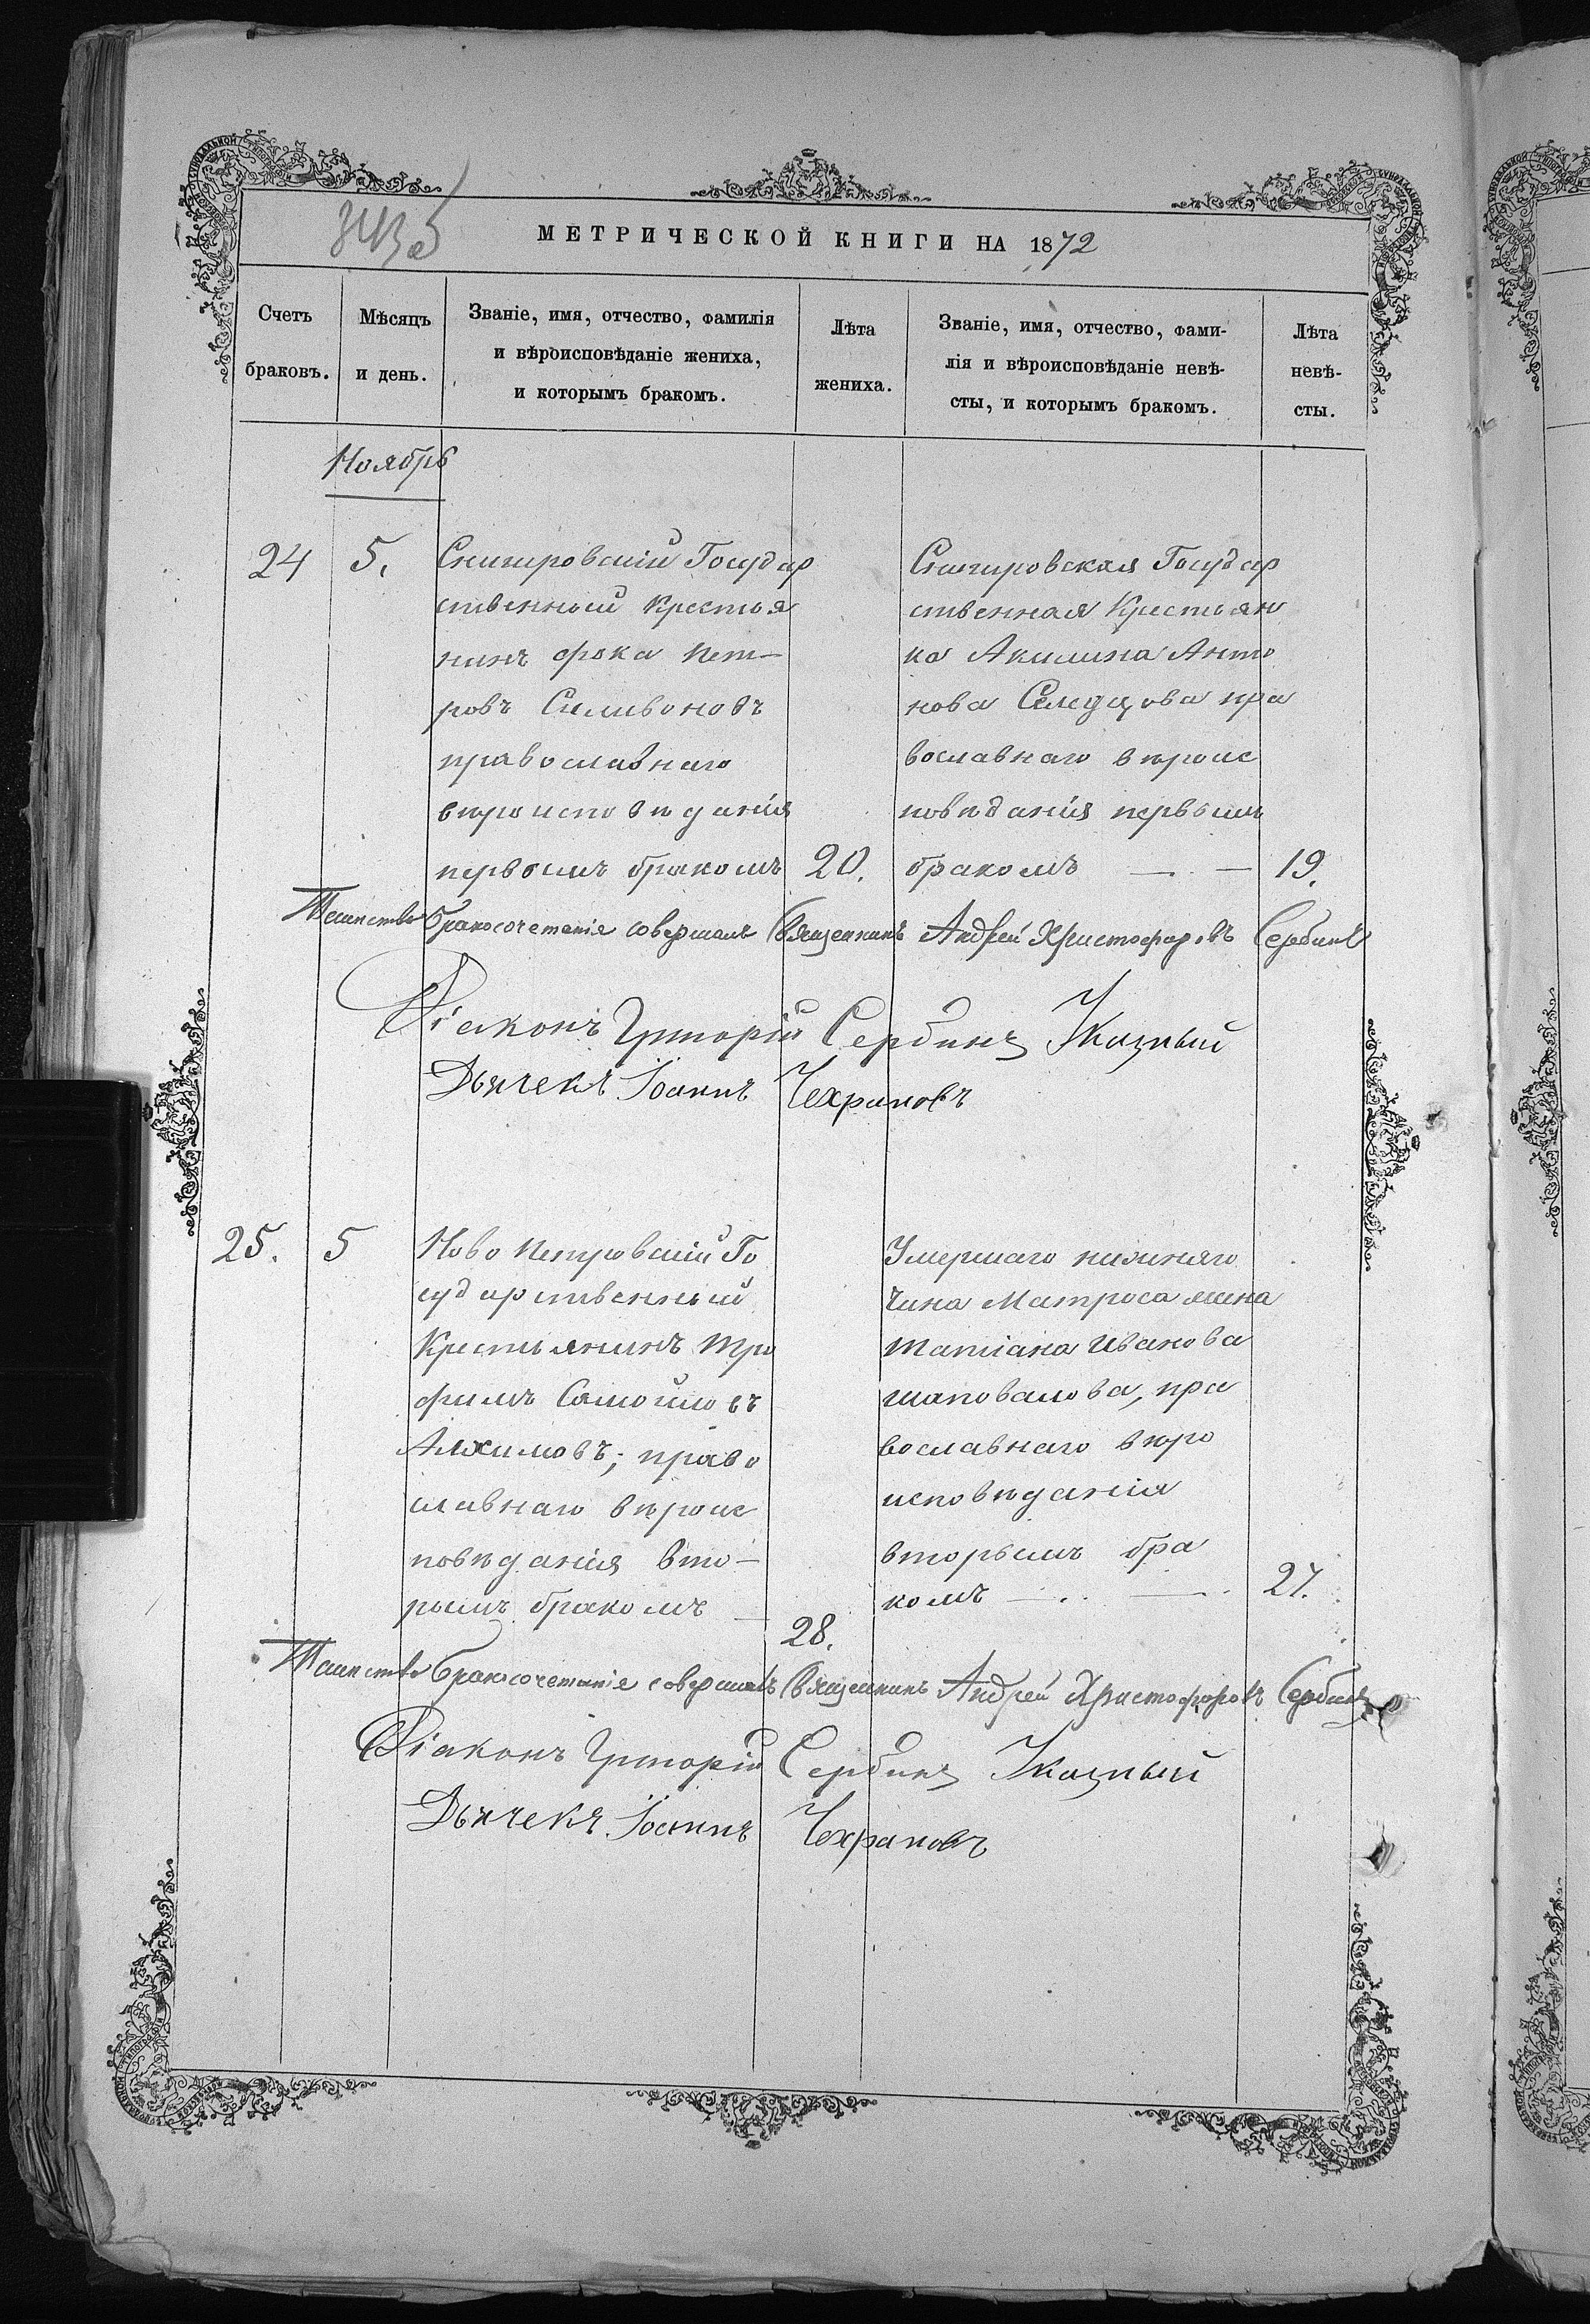 МЕТРИЧЕСКОЙ КНИГИ НА 1872
Счетъ браковъ.
Мѣсяцъ и день.
Званіе, имя, отчество, фамилія
и вѣроисповѣданіе жениха,
и которымъ бракомъ.
Лѣта жениха.
Званіе, имя, отчество, фами-
лія и вѣроисповѣданіе невѣ-
сты, и которымъ бракомъ.
Лѣта невѣ-
сты.
Ноябрь
24
5.
Снигировскій Государ
ственный крестья
нинъ Фока Пет-
ровъ Силивоновъ
православнаго
вѣроисповѣданія
первымъ бракомъ
20.
Снигировская Государ
ственная Крестьян
ка Акилина Анто
нова Селедцова пра
вославнаго вѣроис
повѣданія первымъ
бракомъ —.—
19.
Таинство бракосочетанія совершалъ Священникъ Андрей Христофоровъ Сербинъ
Діаконъ Григорій Сербинъ Указный
Дьячекъ Іоаннъ
25.
5
Ново Петровскій Го
сударственный
Крестьянинъ Тро
фимъ Самойловъ
Алхимовъ; право
славнаго вѣроис
повѣданія вто-
рымъ бракомъ —
28.
Умершаго нижняго
Чина Матроса жена
Татіана Иванова
Шаповалова, пра
вославнаго вѣро
исповѣданія
вторымъ бра
комъ —.. —.
27.
Таинство бракосочетанія совершалъ Священникъ Андрей Христофоровъ Сербинъ
Діаконъ Григорій Сербинъ Указный
Дьячекъ Іоаннъ